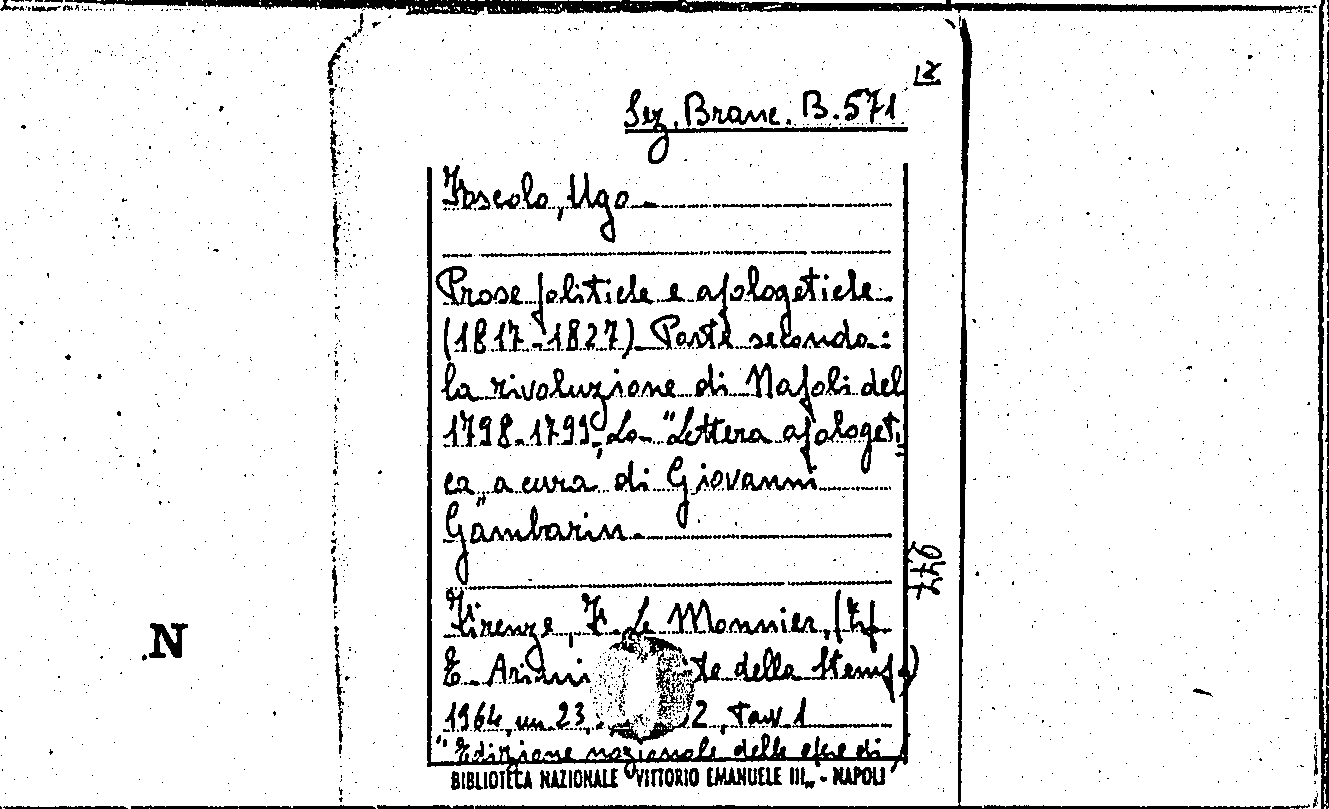 Sez. Branc. B. 571
Foscolo, Ugo
Prose politiche e apologetiche.
(1817-1827) Parte seconda:
la rivoluzione di Napoli del
1798-1799, La "Lettera apologeti
ca" a cura di Giovanni
Gambarin.
Firenze, F. Le Monnier, (Tip.
E. Ariani della Stampa)
1964, cm 23, 2, tav 1
"Edizione nazionale delle opere di
BIBLIOTECA NAZIONALE "VITTORIO EMANUELE III„ - NAPOLI
N